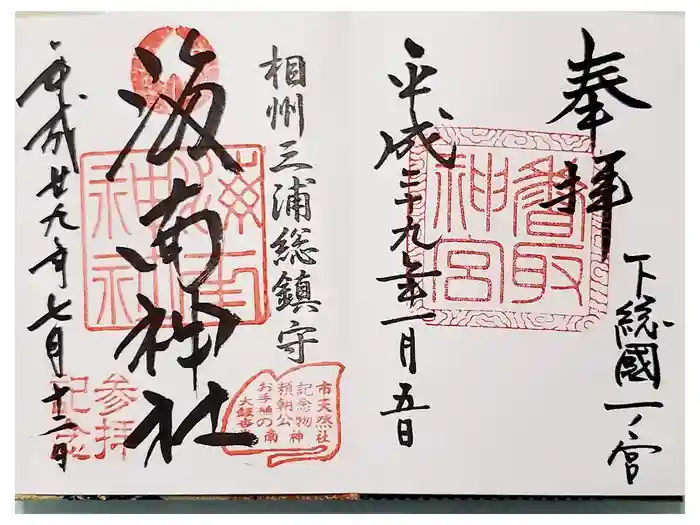 奉拝
下総國一ノ宮
香取神宮
平成二十九年一月五日
相州三浦総鎮守
海南神社
海南神社
市天然
記念物
頼朝公
お手植の
大銀杏
神社
参拝記念
平成廿九年七月十二日